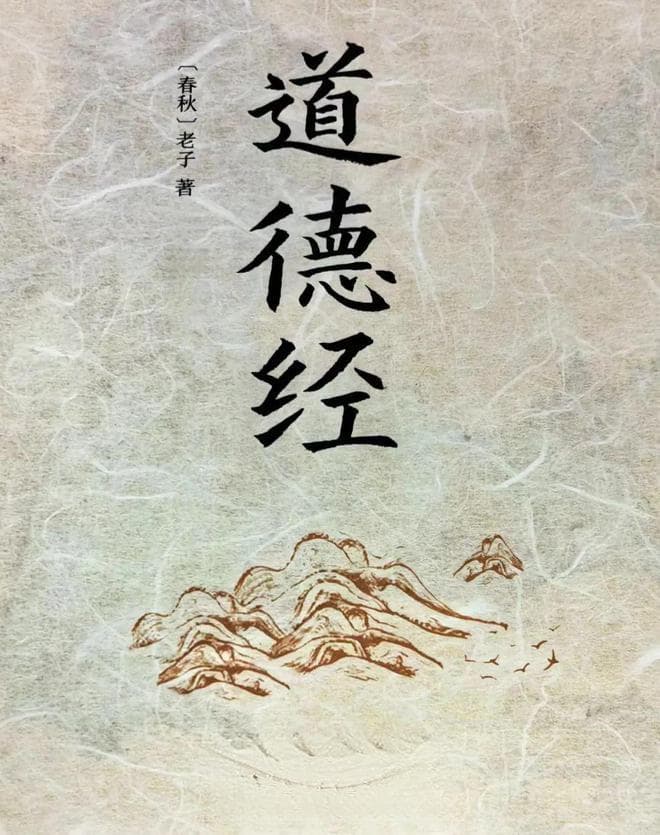 道德经
〔春秋〕老子 著